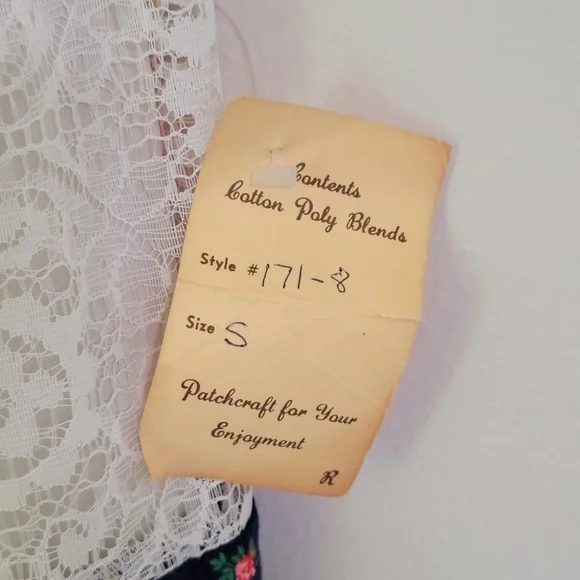 Contents
Cotton Poly Blends
Style # 171-8
Size S
Patchcraft for Your
Enjoyment
R